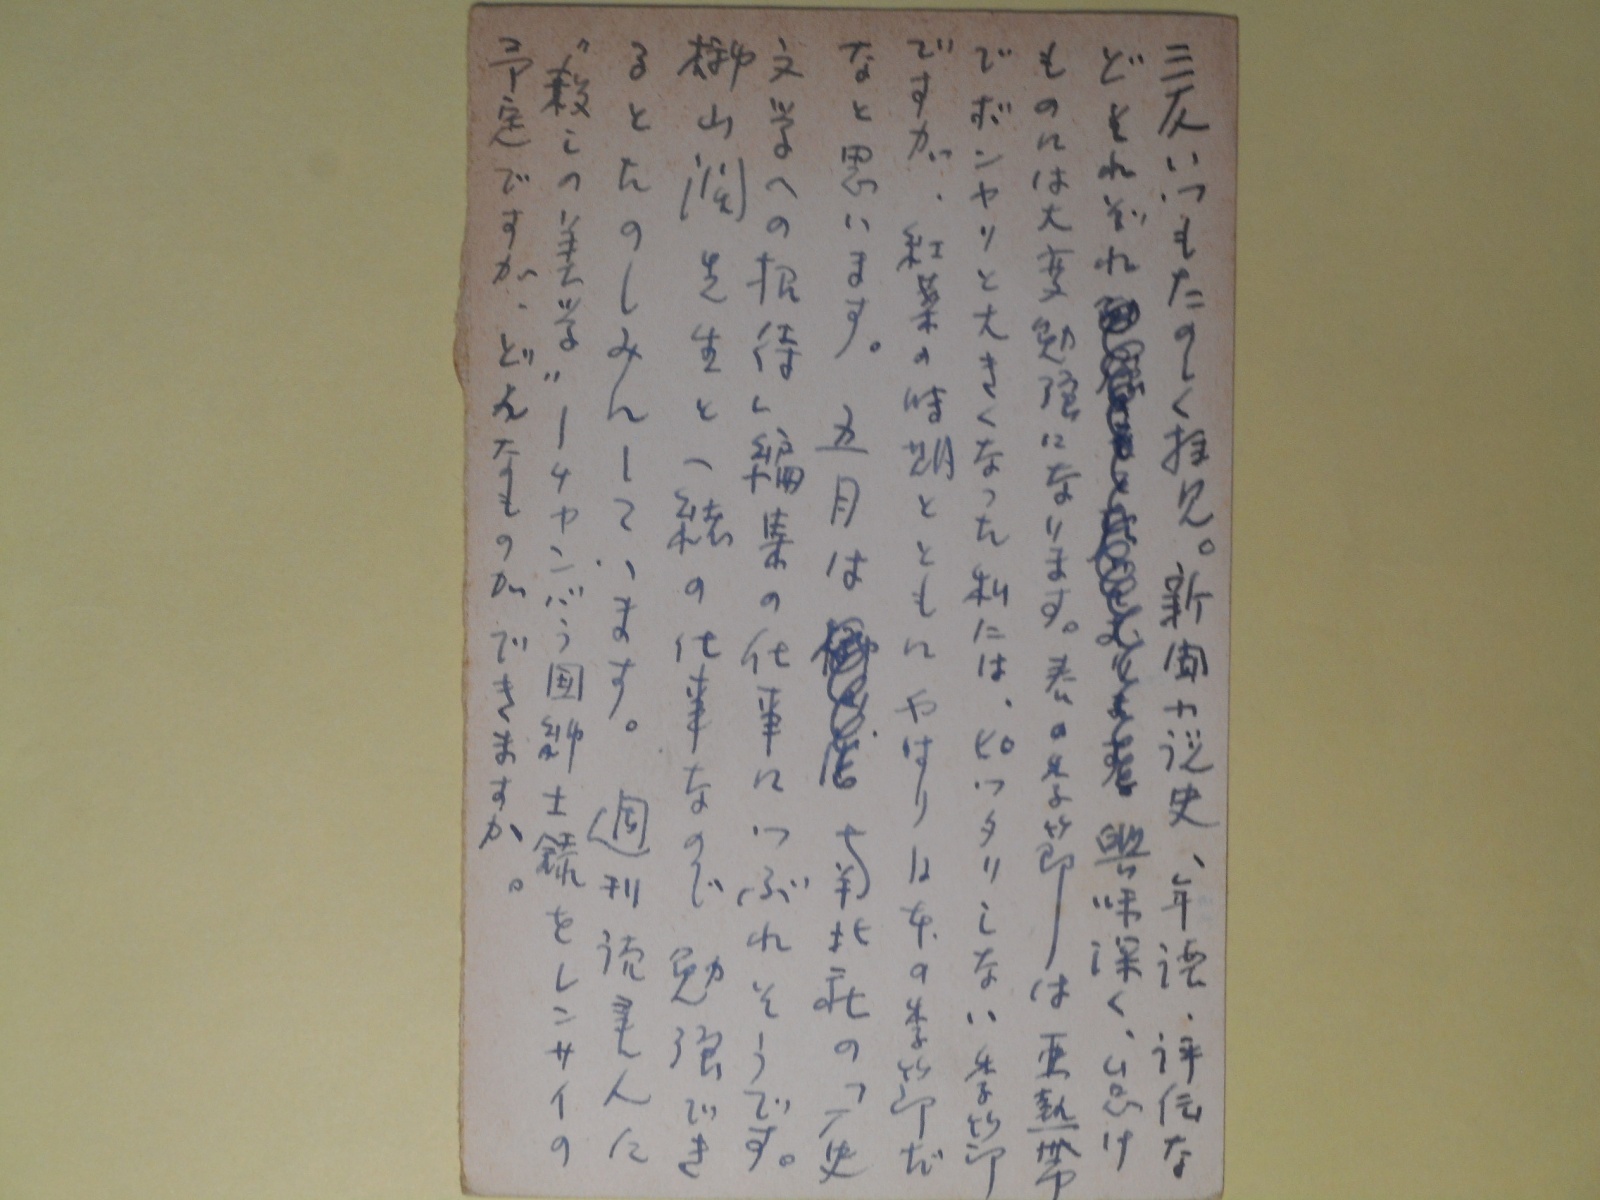 三友いつもたのしく拝見。新聞小説史、年譜、評伝な
どそれぞれ興味深く、怠け
ものには大変勉強になります。春の季節―は亜熱帯
でボンヤリと大きくなった私には、ピッタリしない季節
ですが、紅葉の時期とともにやはり日本の季節だ
なと思います。五月は七曜社の「歴史
文学への招待」編集の仕事につぶれそうです。
榊山潤先生と一緒の仕事なので勉強でき
るとたのしみんしています。週刊読売に
"殺しの美学"―チャンバラ国紳士録をレンサイの
予定ですが、どんなものができますか。